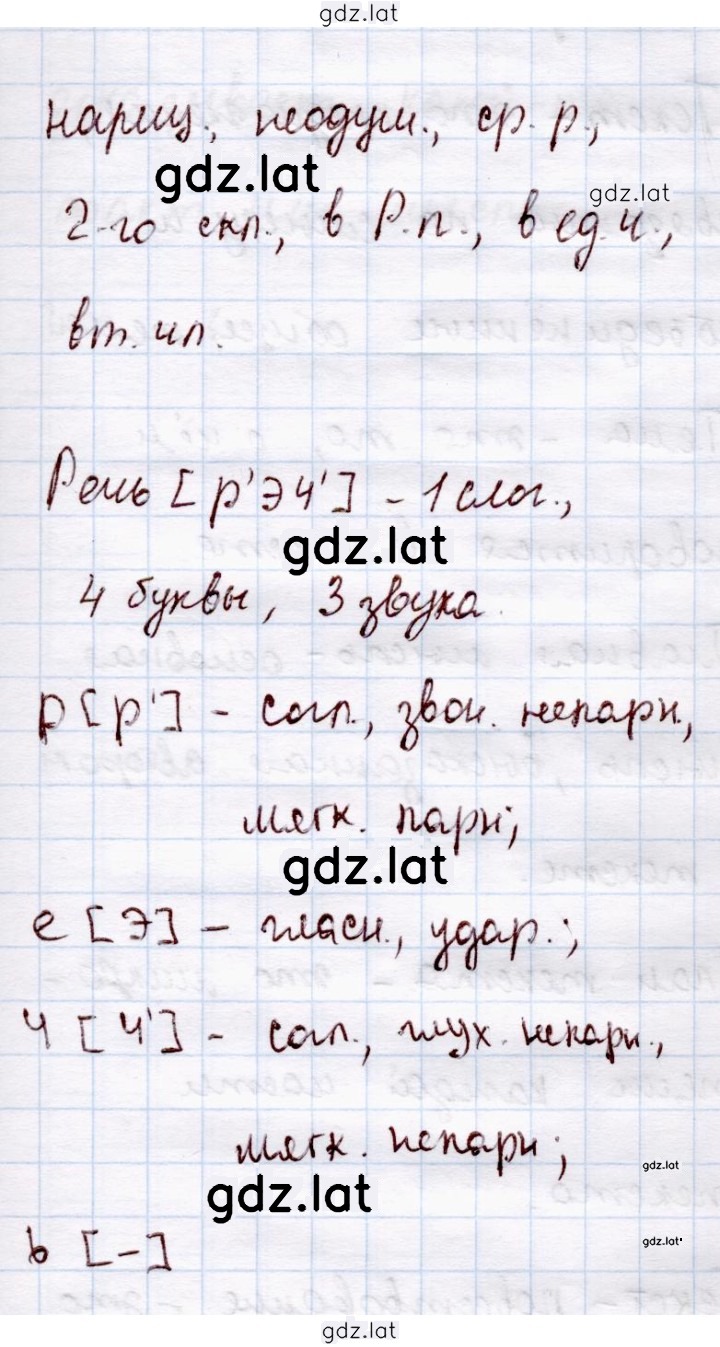 gdz.lat
нариц., неодуш., ср. р.,
gdz.lat
gdz.lat
2-го скл., в Р.п., в ед.ч.,
вт. чл.
Речь [р'эч'] - 1 слог.,
gdz.lat
4 буквы, 3 звука.
р [р'] - согл., звон. непарн.,
мягк. парн;
gdz.lat
е [э] - гласн., удар.;
ч [ч'] - согл., глух. непарн.,
мягк. непарн;
gdz.lat
gdz.lat
ь [-]
gdz.lat
gdz.lat